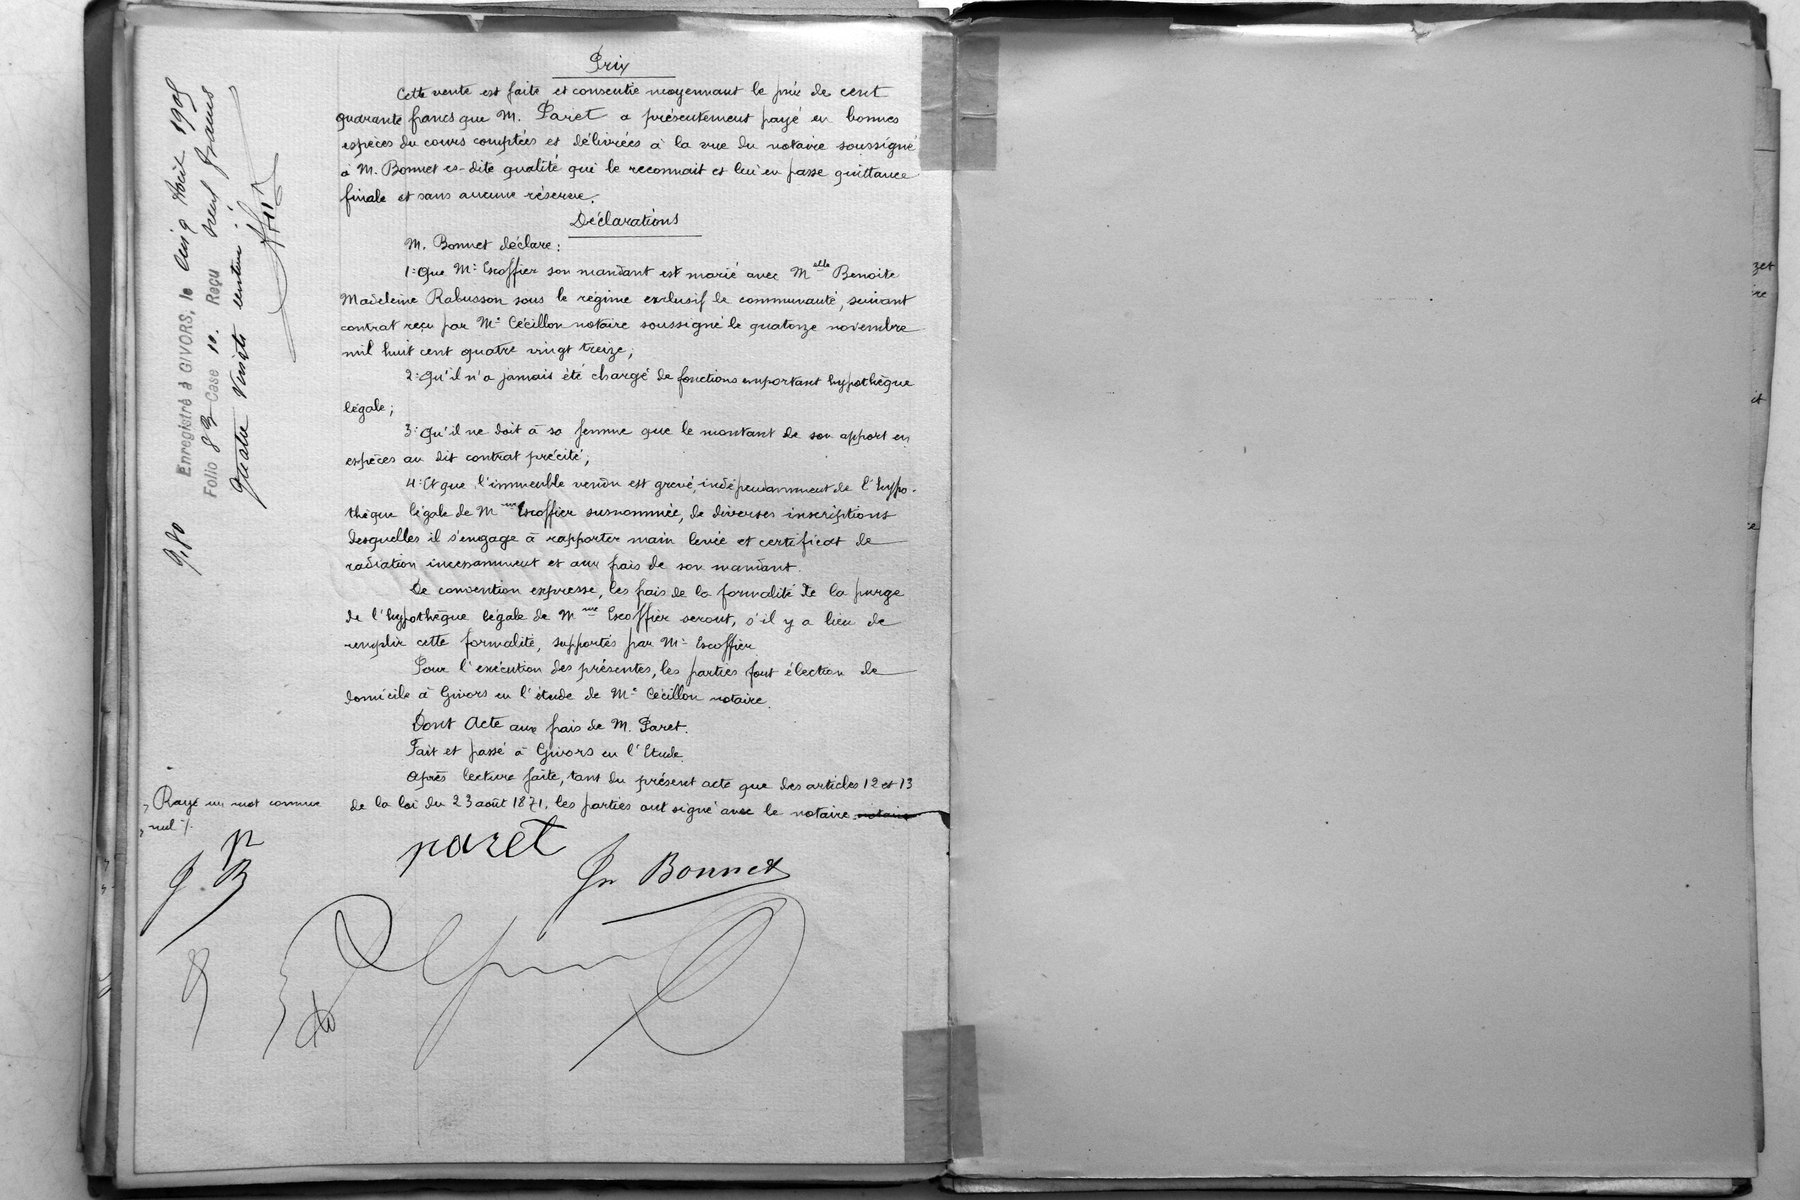 Prix
Cette vente est faite et consentie moyennant le prix de cent
quarante francs que M. Paret a présentement payé en bonnes
espèces du cours comptées et délivrées à la vue du notaire soussigné
à M. Bonnet es-dite qualité qui le reconnait et lui en passe quittance
finale et sans aucune réserve.
Déclarations
M. Bonnet déclare:
1: Que Mr Escoffier son mandant est marié avec Melle Benoite
Madeleine Rabusson sous le régime exclusif de communauté, suivant
contrat reçu par Me Cécillon notaire soussigné le quatorze novembre
mil huit cent quatre vingt treize;
2: Qu'il n'a jamais été chargé de fonctions emportant hypothèque
légale;
3: Qu'il ne doit à sa femme que le montant de son apport en
espèces au dit contrat précité;
4: Et que l'immeuble vendu est grevé, indépendamment de l'hypo-
thèque légale de Mme Escoffier susnommée, de diverses inscriptions
desquelles il s'engage à rapporter main levée et certificat de
radiation incessamment et aux frais de son mandant.
De convention expresse, les frais de la formalité de la purge
de l'hypothèque légale de Mme Escoffier seront, s'il y a lieu de
remplir cette formalité, supportés par Mr Escoffier.
Pour l'exécution des présentes, les parties font élection de
domicile à Givors en l'étude de Me Cécillon notaire.
Dont Acte aux frais de M. Paret.
Fait et passé à Givors en l'Etude
Après lecture faite, tant du présent acte que des articles 12 et 13
de la loi du 23 août 1871, les parties ont signé avec le notaire. notaire
Rayé un mot comme
nul
paret
Bonnet
P
B
Enregistré à GIVORS, le Cinq Août 1905
Folio 83 Case 10. Reçu neuf francs
quatre vingts centimes
9,80